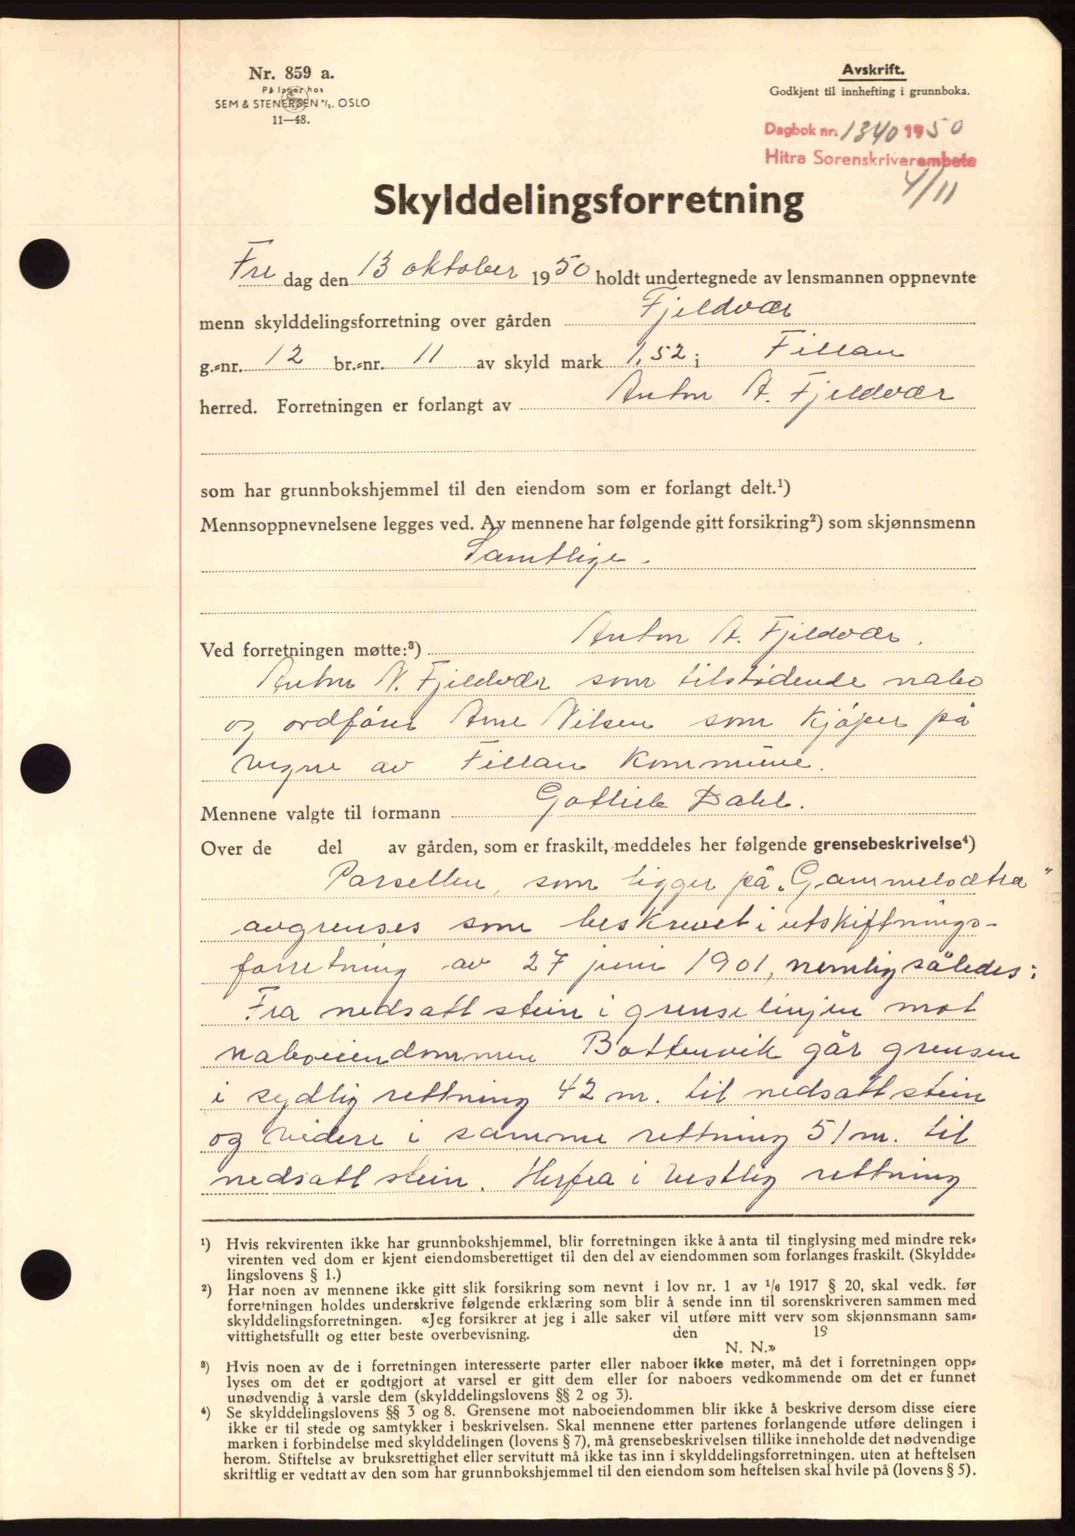 Nr. 859 a.
På lager hos
SEM & STENERSEN A/S. OSLO
11—48.
Avskrift.
Godkjent til innhefting i grunnboka.
Dagbok nr. 1340 1950
Hitra Sorenskriverembete
4/11
Skylddelingsforretning
Fre dag den 13 oktober 1950 holdt undertegnede av lensmannen oppnevnte
menn skylddelingsforretning over gården Fjeldvær
g.-nr. 12 br.-nr. 11 av skyld mark 1,52 i Fillan
herred. Forretningen er forlangt av Anton A. Fjeldvær
som har grunnbokshjemmel til den eiendom som er forlangt delt.¹)
Mennsoppnevnelsene legges ved. Av mennene har følgende gitt forsikring²) som skjønnsmenn
Samtlige.
Ved forretningen møtte:³) Anton A. Fjeldvær.
Anton N. Fjeldvær som tilstødende nabo
og ordfører Arne Nilsen som kjøper på
vegne av Fillan Kommune.
Mennene valgte til formann Gotlieb Dahl.
Over de del av gården, som er fraskilt, meddeles her følgende grensebeskrivelse⁴)
Parsellen, som ligger på „Gammelsætra"
avgrenses som beskrevet i utskiftnings-
forretning av 27 juni 1901, nemlig således:
Fra nedsatt stein i grenselinjen mot
naboeiendommen Bottenvik går grensen
i sydlig rettning 42 m. til nedsatt stein
og videre i samme rettning 51 m. til
nedsatt stein. Herfra i vestlig rettning
¹) Hvis rekvirenten ikke har grunnbokshjemmel, blir forretningen ikke å anta til tinglysing med mindre rek-
virenten ved dom er kjent eiendomsberettiget til den del av eiendommen som forlanges fraskilt. (Skyldde-
lingslovens § 1.)
²) Har noen av mennene ikke gitt slik forsikring som nevnt i lov nr. 1 av 1/6 1917 § 20, skal vedk. før
forretningen holdes underskrive følgende erklæring som blir å sende inn til sorenskriveren sammen med
skylddelingsforretningen. «Jeg forsikrer at jeg i alle saker vil utføre mitt verv som skjønnsmann sam-
vittighetsfullt og etter beste overbevisning. den 19
N. N.»
³) Hvis noen av de i forretningen interesserte parter eller naboer ikke møter, må det i forretningen opp-
lyses om det er godtgjort at varsel er gitt dem eller for naboers vedkommende om det er funnet
unødvendig å varsle dem (skylddelingslovens §§ 2 og 3).
⁴) Se skylddelingslovens §§ 3 og 8. Grensene mot naboeiendommen blir ikke å beskrive dersom disse eiere
ikke er til stede og samtykker i beskrivelsen. Skal mennene etter partenes forlangende utføre delingen i
marken i forbindelse med skylddelingen (lovens § 7), må grensebeskrivelsen tillike inneholde det nødvendige
herom. Stiftelse av bruksrettighet eller servitutt må ikke tas inn i skylddelingsforretningen. uten at heftelsen
skriftlig er vedtatt av den som har grunnbokshjemmel til den eiendom som heftelsen skal hvile på (lovens § 5).